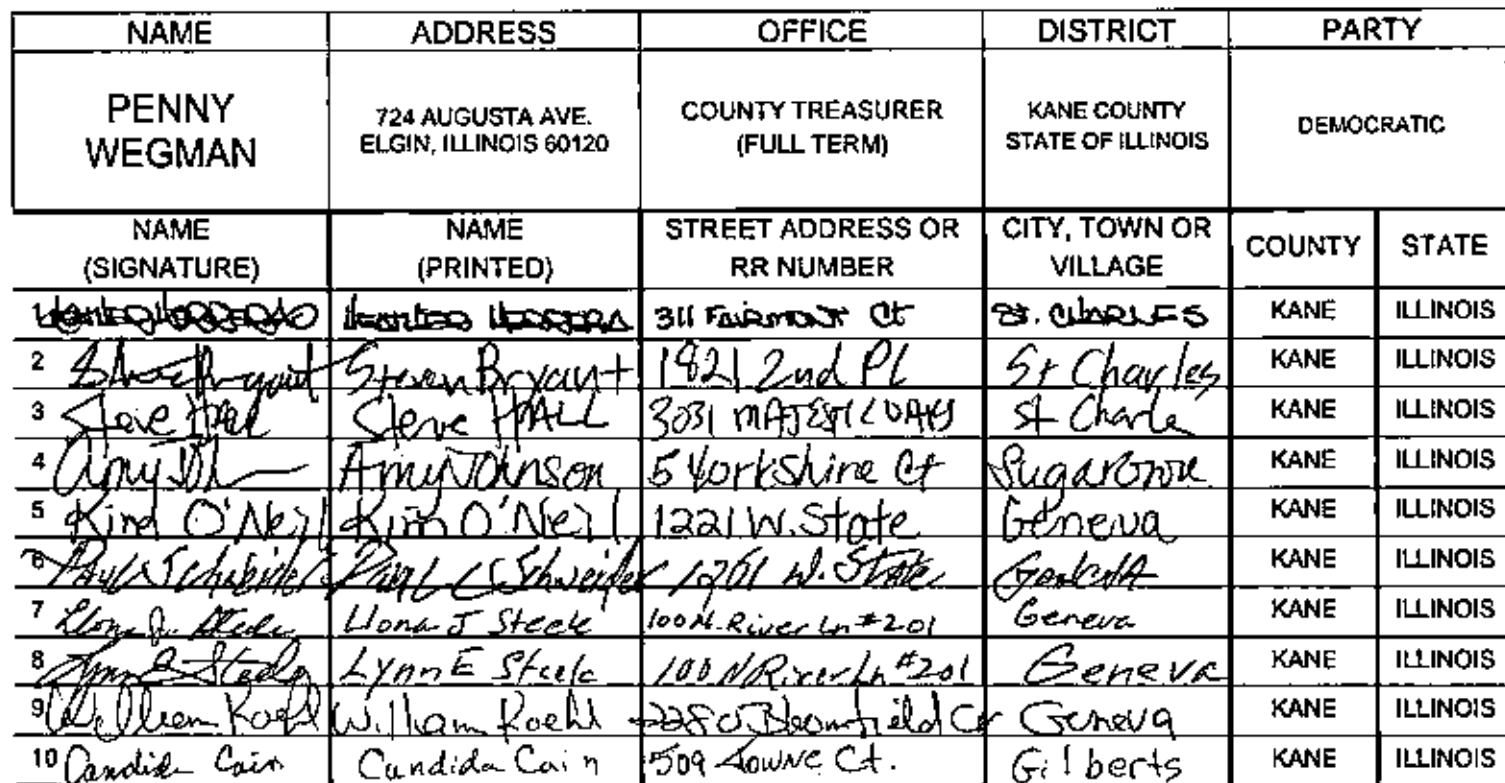 NAME ADDRESS OFFICE DISTRICT PARTY
PENNY WEGMAN 724 AUGUSTA AVE. ELGIN, ILLINOIS 60120 COUNTY TREASURER (FULL TERM) KANE COUNTY STATE OF ILLINOIS DEMOCRATIC
NAME (SIGNATURE) NAME (PRINTED) STREET ADDRESS OR RR NUMBER CITY, TOWN OR VILLAGE COUNTY STATE
1 311 FAIRMONT Ct ST. CHARLES KANE ILLINOIS
2 Steven Bryant 1821 2nd PL St Charles KANE ILLINOIS
3 Steve Hall Steve HALL 3031 MAJESTIC OAKS St Charle KANE ILLINOIS
4 Amy Johnson 5 Yorkshire Ct Sugar Grove KANE ILLINOIS
5 Kim O'Neil Kim O'Neil 1221 W. State Geneva KANE ILLINOIS
6 Paul Schneider W. State KANE ILLINOIS
7 Ilona J Steele 100 N. River Ln #201 Geneva KANE ILLINOIS
8 Lynn E Steele Lynn E Steele 100 N River Ln #201 Geneva KANE ILLINOIS
9 William Koehl William Koehl Bloomfield Cr Geneva KANE ILLINOIS
10 Candida Cain Candida Cain 509 Towne Ct. Gilberts KANE ILLINOIS